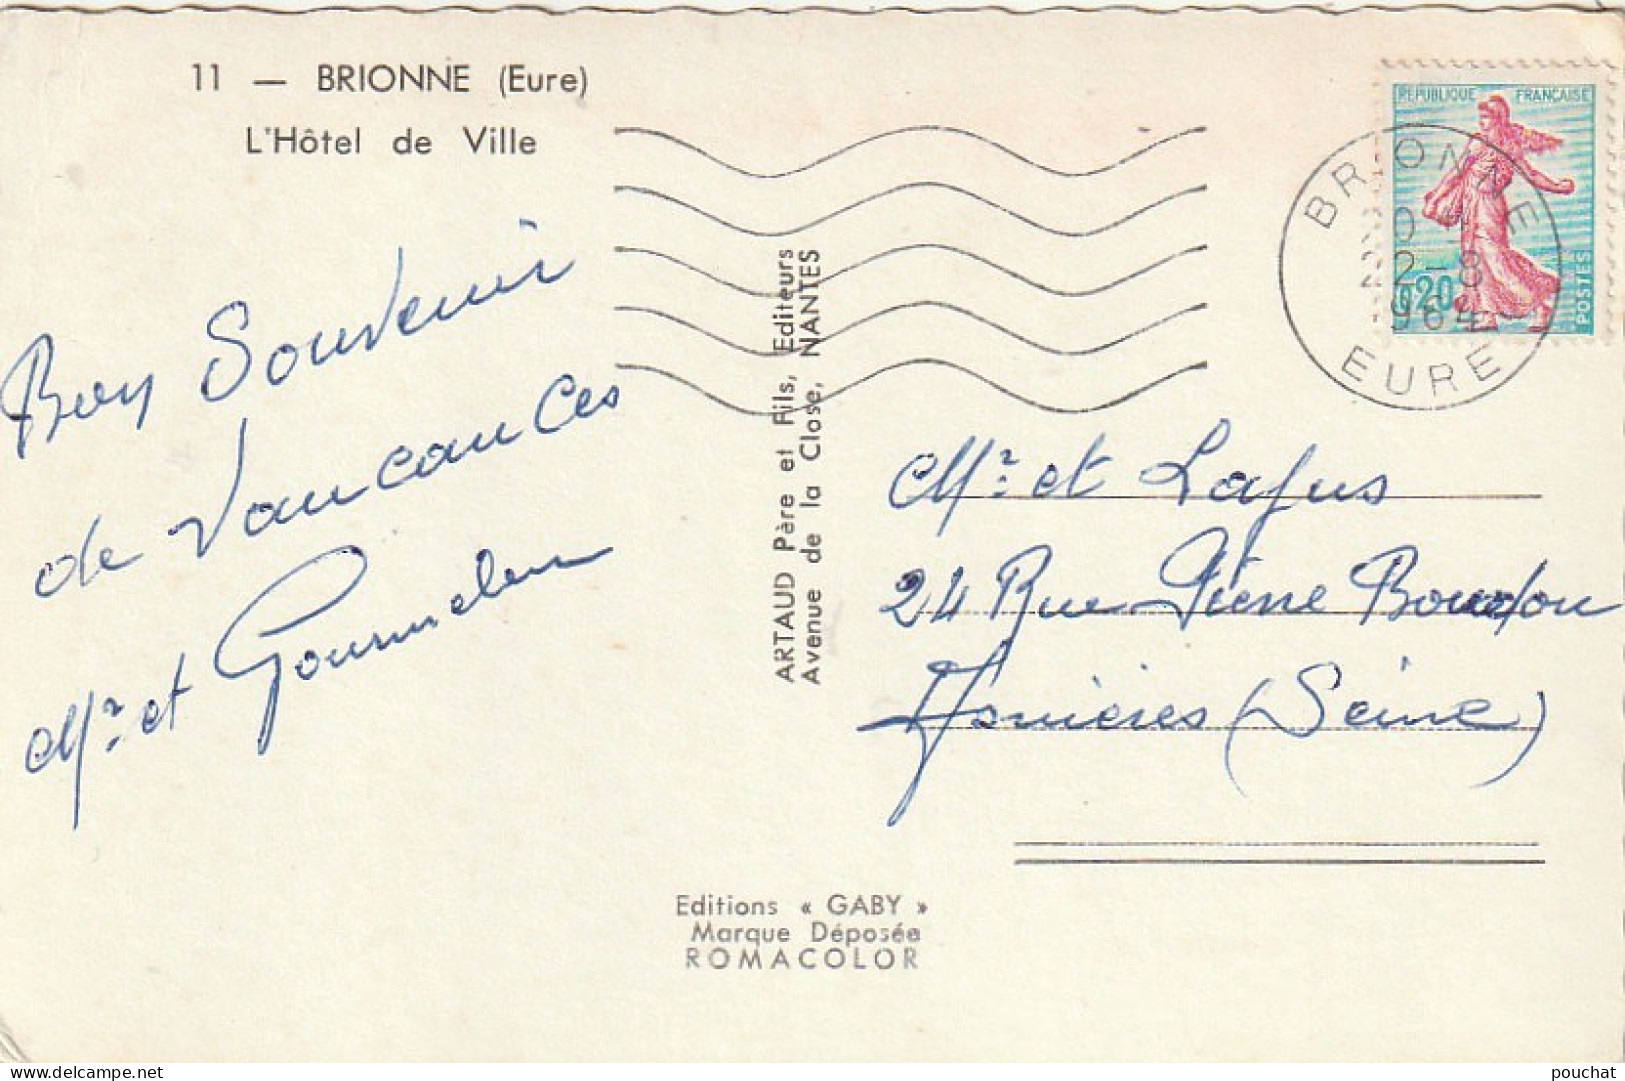 11 — BRIONNE (Eure)
L'Hôtel de Ville
REPUBLIQUE FRANÇAISE
0,20
POSTES
BRIONNE
2-8
1964
EURE
Bon Souvenir
de Vancances
Mr et
ARTAUD Père et Fils, Editeurs
Avenue de la Close, NANTES
Mr et Lafus
24 Rue Pierre Bourdon
Asnières (Seine)
Editions « GABY »
Marque Déposée
ROMACOLOR
pouchat